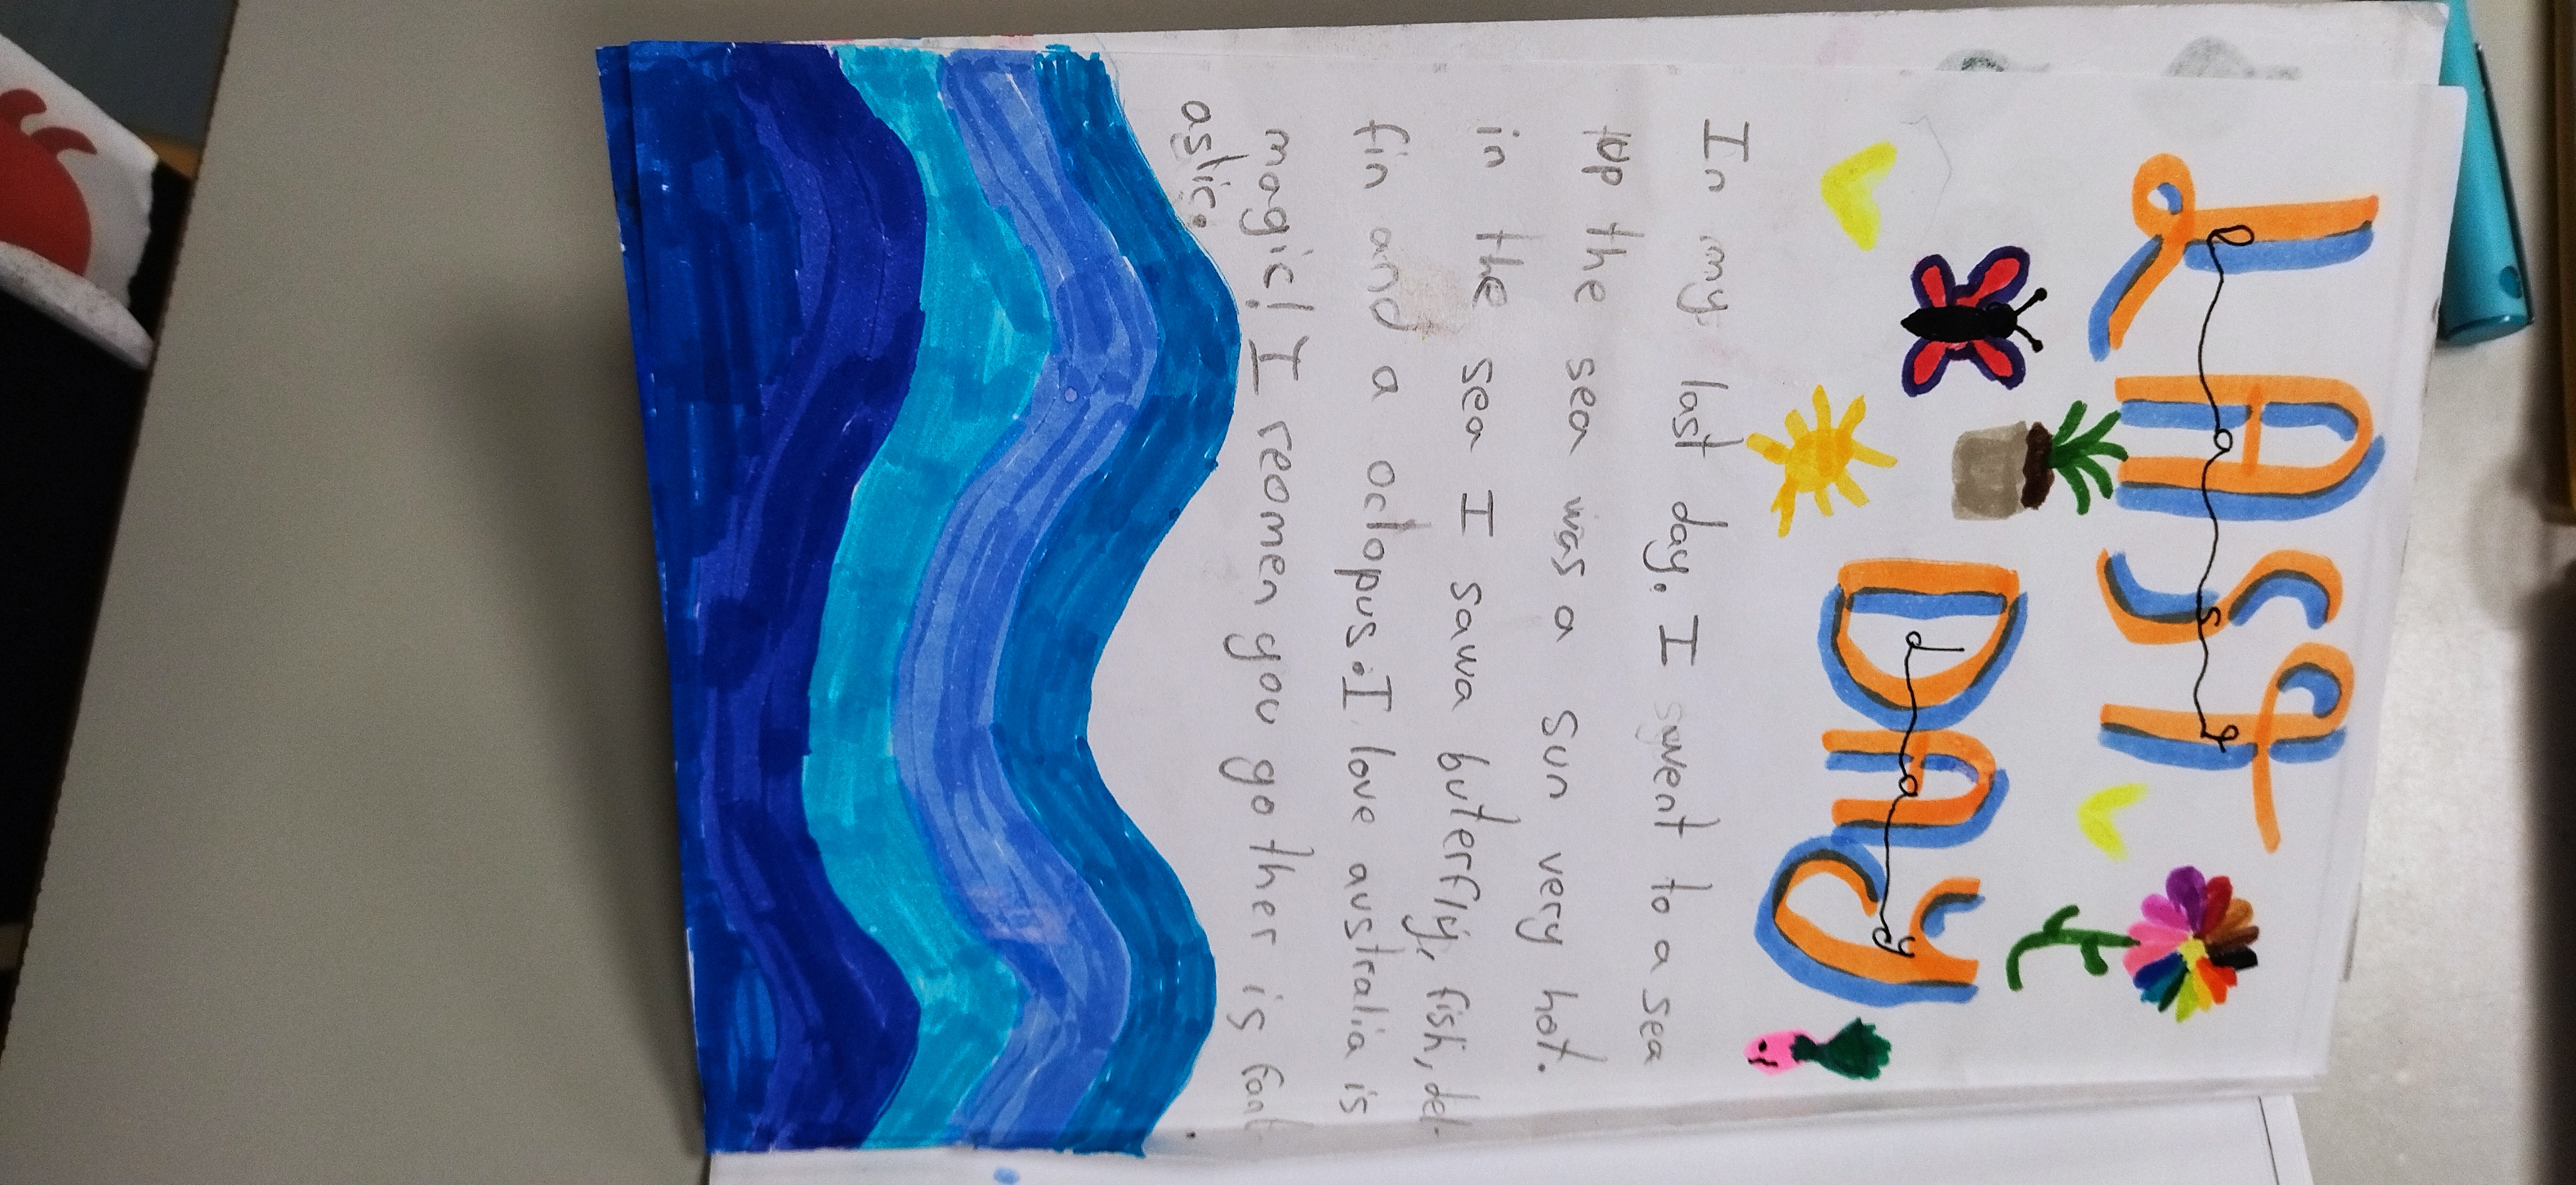 LAST
last
DAY
day
In my last day. I went to a sea
up the sea was a sun very hot.
in the sea I sawa buterfly, fish, del-
fin and a octopus. I love australia is
magic! I reomen you go ther is fant
astic.